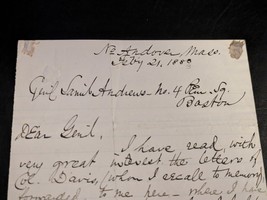 No. Andover, Mass.
Feby 21, 1880
Genl. Saml. Andrews - No. 4 Pem. Sq.
Boston
Dear Genl,
I have read with
very great interest the letters of
Col. Davis, (whom I recall to memory)
forwarded to me here - where I have